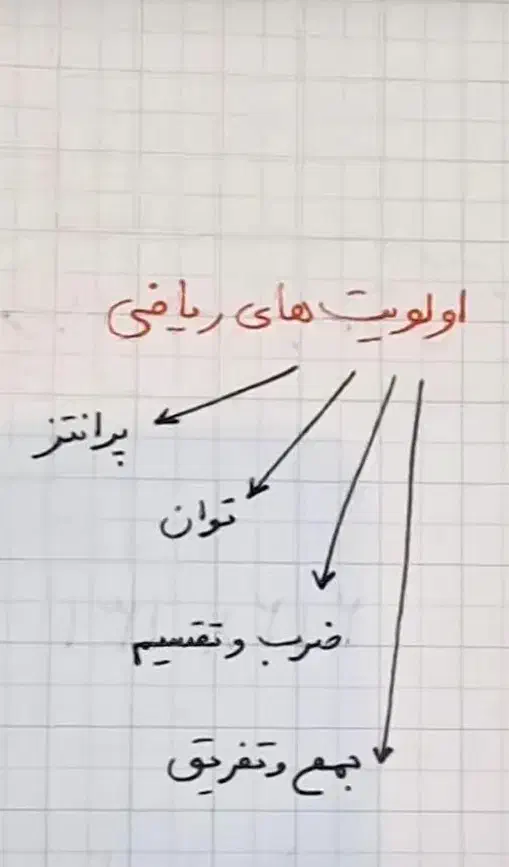 اولویت های ریاضی
پرانتز
توان
ضرب و تقسیم
جمع و تفریق